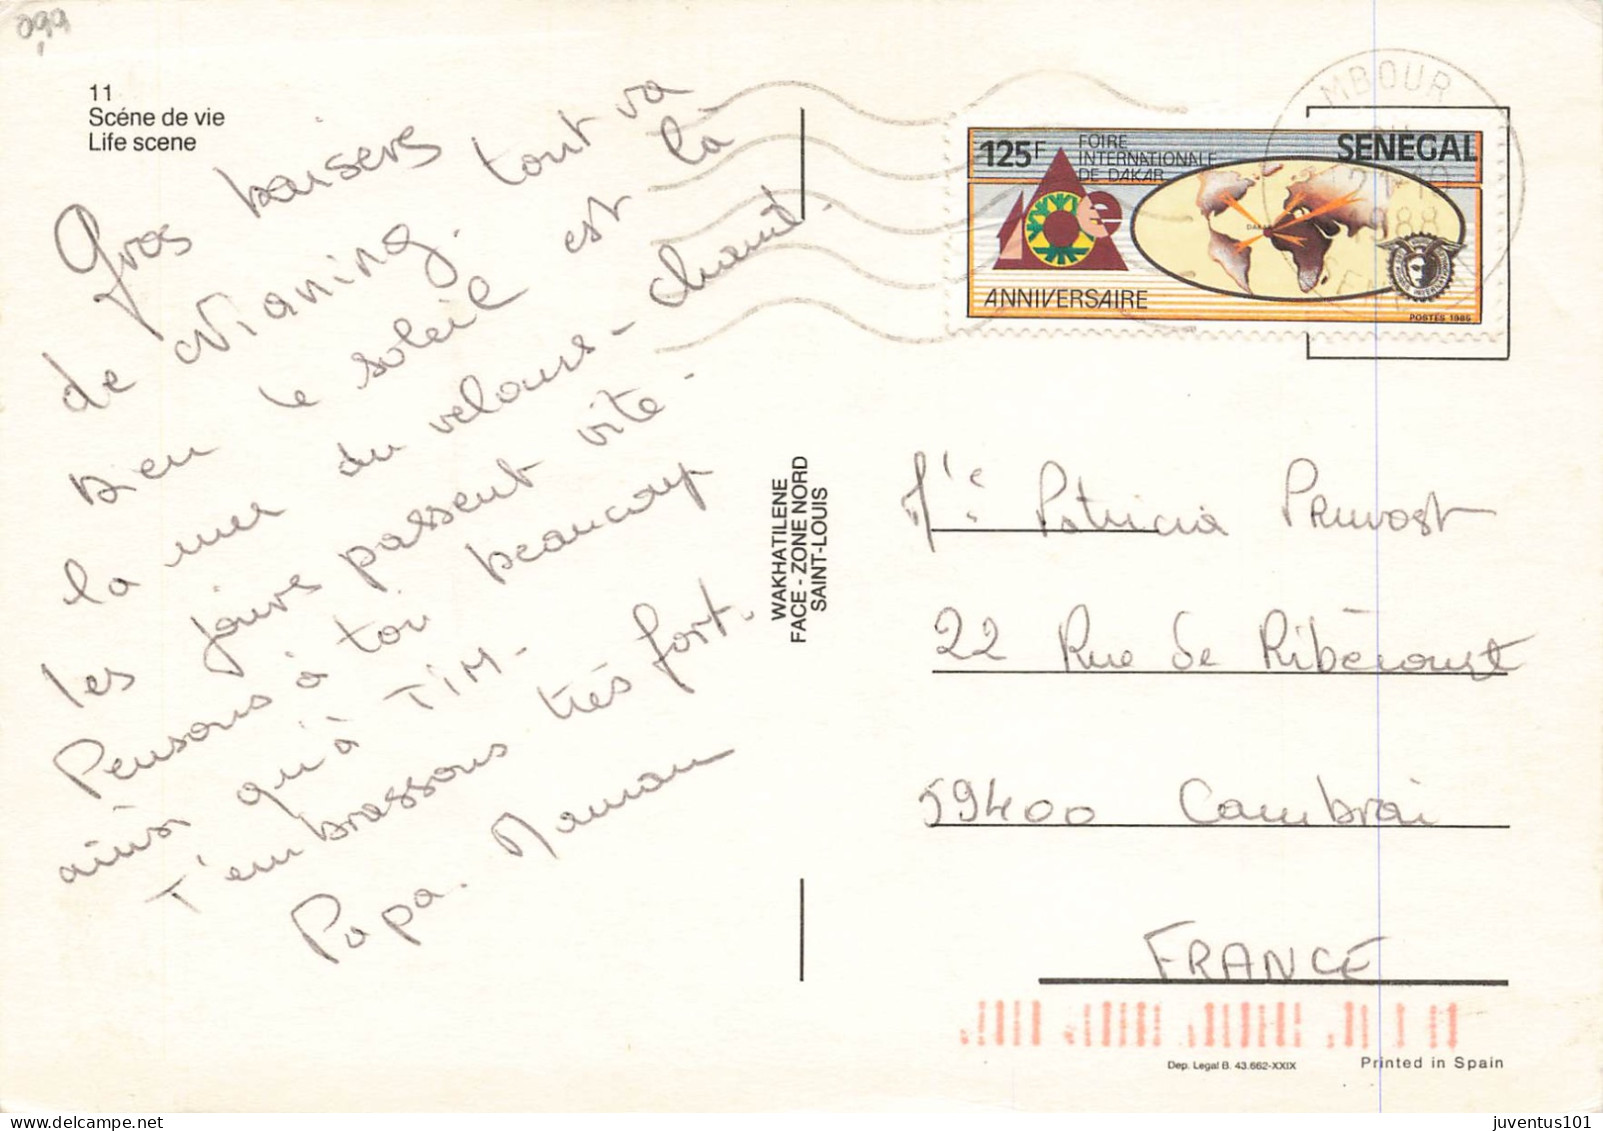 099
11
Scéne de vie
Life scene
Gros baisers
de Nianing. tout va
bien le soleil est là
la mer du velours - chaud.
les jours passent vite -
Pensons à toi beaucoup
ainsi qu'à TIM -
T'embrassons très fort.
Papa. Maman
WAKHATILENE
FACE - ZONE NORD
SAINT-LOUIS
MBOUR
1988
125F
FOIRE
INTERNATIONALE
DE DAKAR
SENEGAL
DAKAR
ANNIVERSAIRE
POSTES 1985
Patricia Pruvost
22 Rue de Ribécourt
59400 Cambrai
FRANCE
Dep. Legal B. 43.662-XXIX
Printed in Spain
juventus101